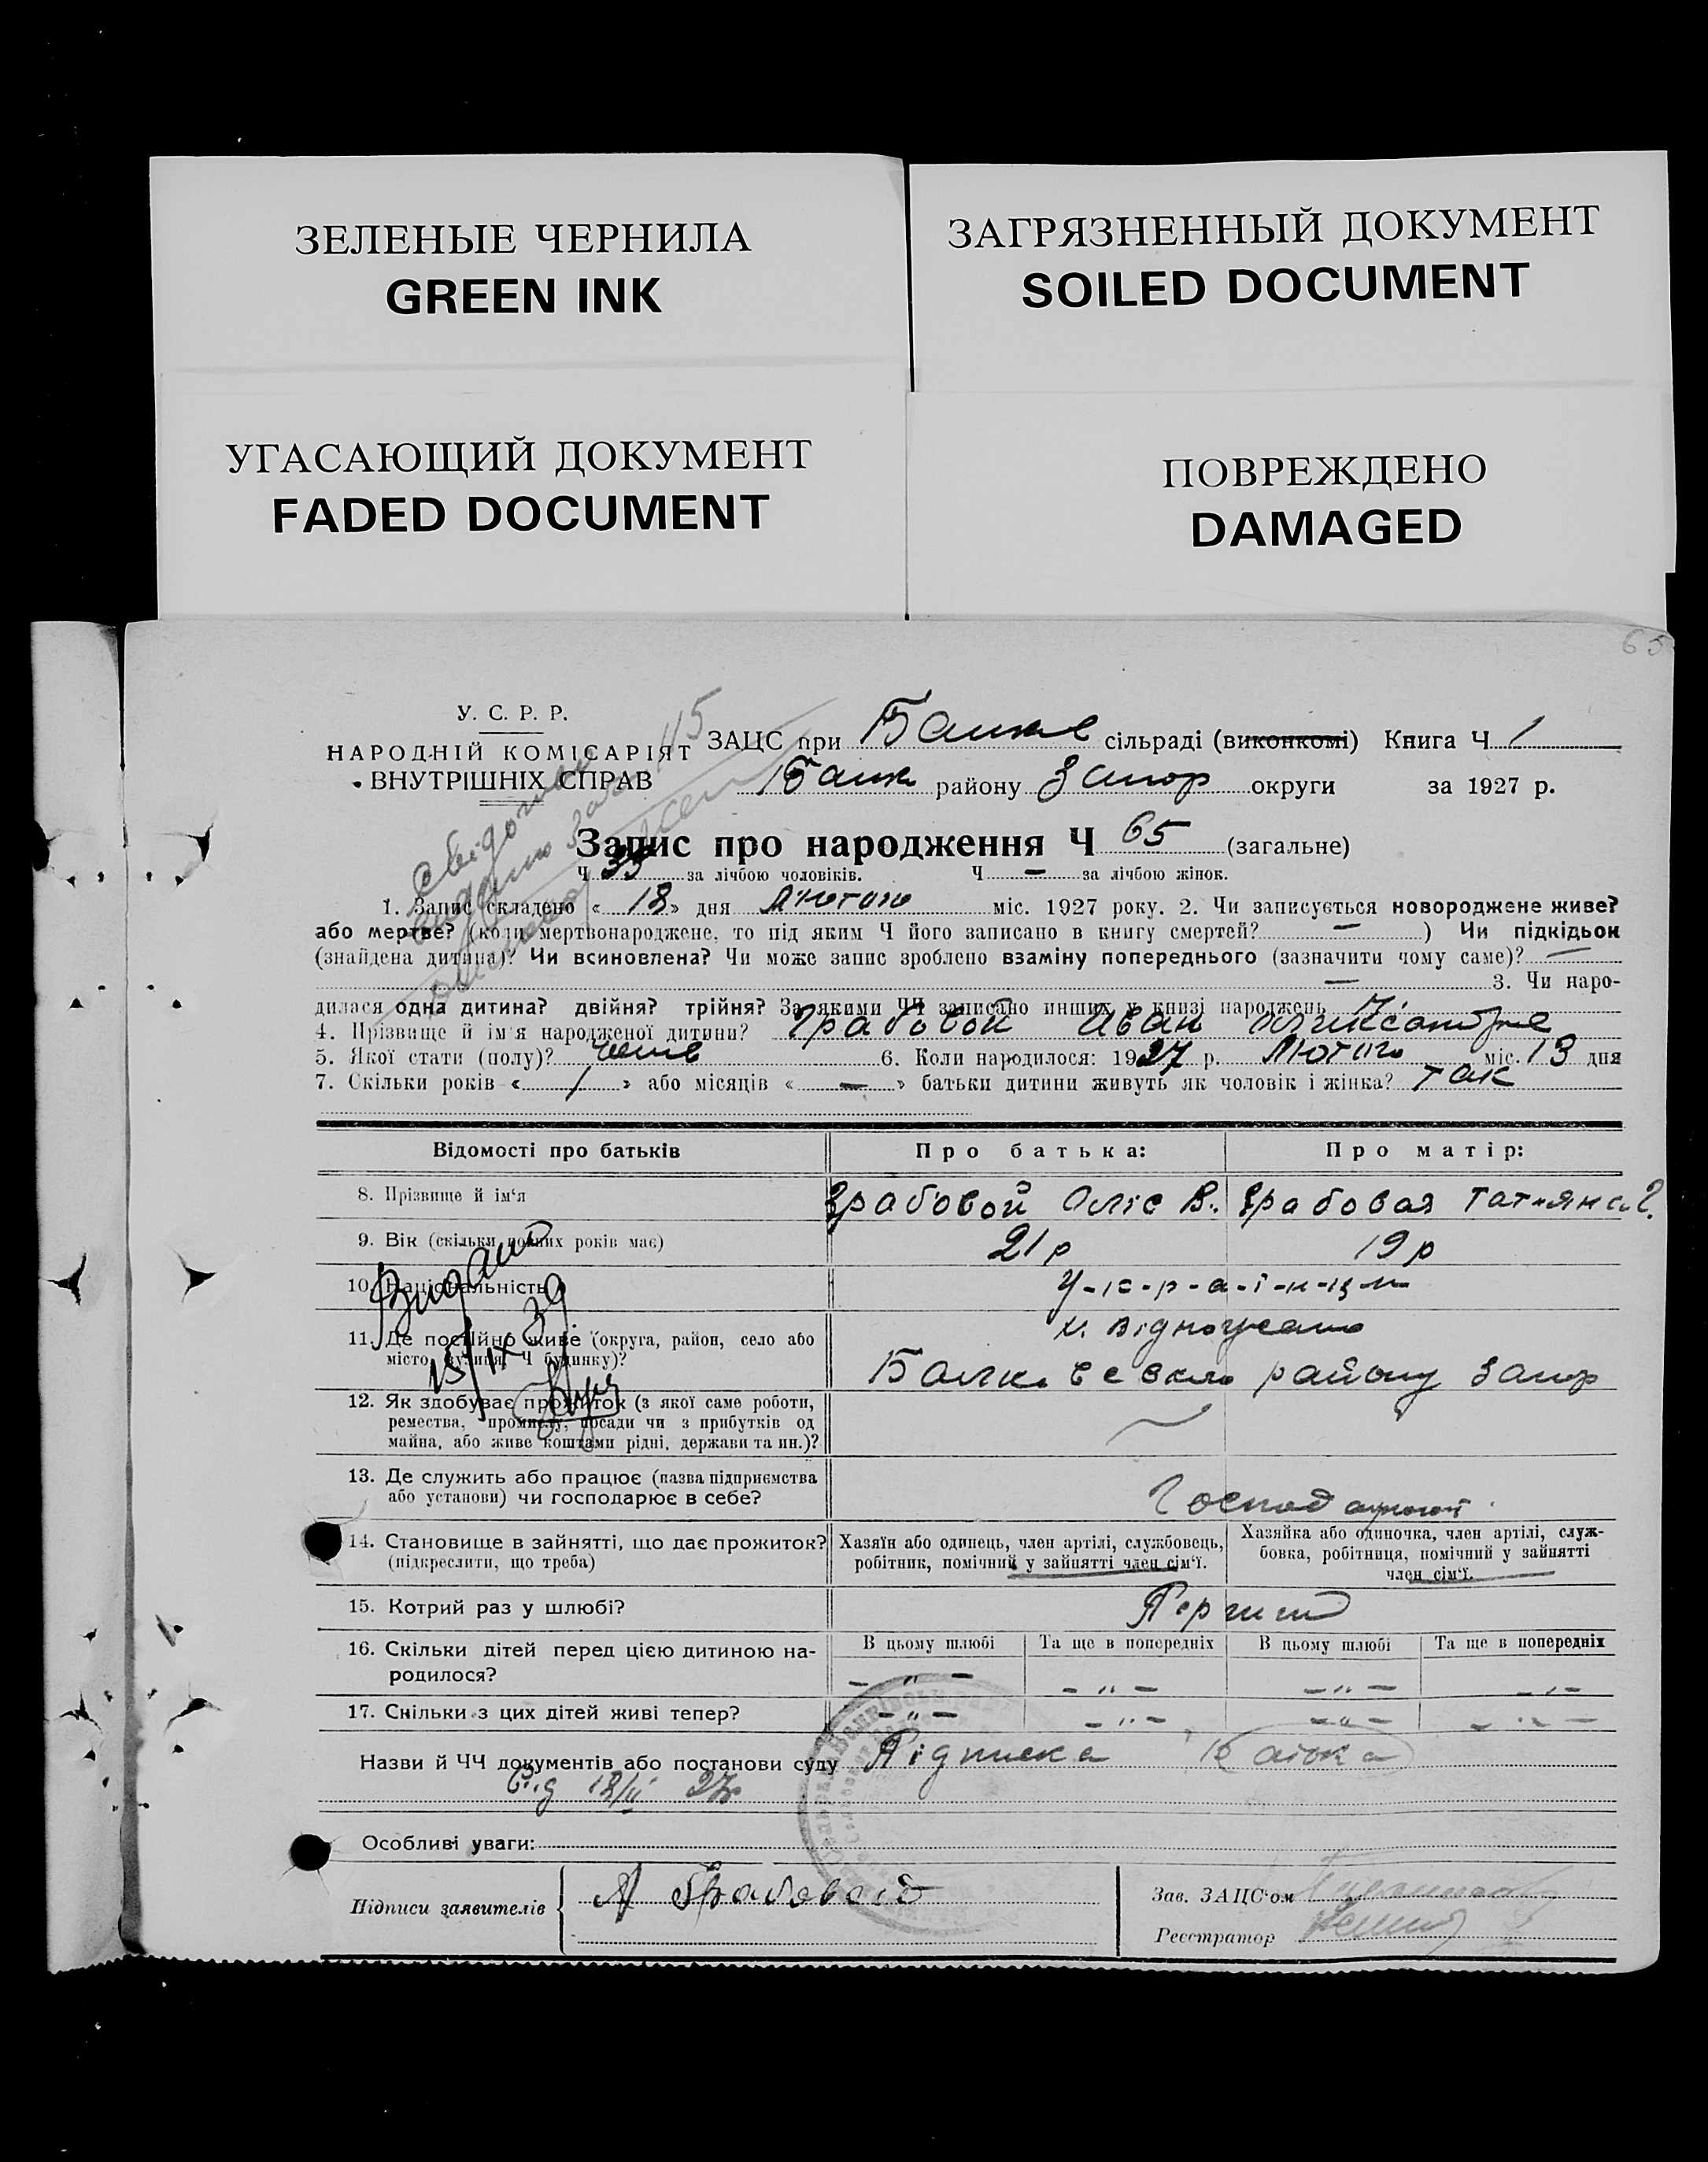 ЗЕЛЕНЫЕ ЧЕРНИЛА
GREEN INK
ЗАГРЯЗНЕННЫЙ ДОКУМЕНТ
SOILED DOCUMENT
УГАСАЮЩИЙ ДОКУМЕНТ
FADED DOCUMENT
ПОВРЕЖДЕНО
DAMAGED
65
У. С. Р. Р.
НАРОДНІЙ КОМІСАРІЯТ
ВНУТРІШНІХ СПРАВ
ЗАЦС при сільраді (виконкомі) Книга Ч 1
району Запор округи за 1927 р.
Запис про народження Ч 65 (загальне)
Ч 35 за лічбою чоловіків. Ч — за лічбою жінок.
1. Запис складено « 18 » дня Лютого міс. 1927 року. 2. Чи записується новороджене живе?
або мертве? (коли мертвонароджене, то під яким Ч його записано в книгу смертей? — ) Чи підкідьок
(знайдена дитина)? Чи всиновлена? Чи може запис зроблено взаміну попереднього (зазначити чому саме)? —
— 3. Чи наро-
дилася одна дитина? двійня? трійня? За якими ЧЧ записано инших у книзі народжень
4. Прізвище й ім'я народженої дитини? Грабовой Иван
5. Якої стати (полу)? 6. Коли народилося: 1927 р. Лютого міс. 13 дня
7. Скільки років « 1 » або місяців « — » батьки дитини живуть як чоловік і жінка? так
Відомості про батьків
Про батька:
Про матір:
8. Прізвище й ім'я
Грабовой Оліс В. Грабовая Татьяна Г.
9. Вік (скільки повних років має)
21 р 19 р
10. Національність
У-к-р-а-ї-н-ци
11. Де постійно живе (округа, район, село або
місто, вулиця, Ч будинку)?
району Запор
12. Як здобуває прожиток (з якої саме роботи,
ремества, промислу, посади чи з прибутків од
майна, або живе коштами рідні, держави та ин.)?
Видано
15/IX 39
13. Де служить або працює (назва підприємства
або установи) чи господарює в себе?
14. Становище в зайнятті, що дає прожиток?
(підкреслити, що треба)
Хазяїн або одинець, член артілі, службовець,
робітник, помічний у зайнятті член сім'ї.
Хазяйка або одиночка, член артілі, служ-
бовка, робітниця, помічний у зайнятті
член сім'ї.
15. Котрий раз у шлюбі?
16. Скільки дітей перед цією дитиною на-
родилося?
В цьому шлюбі Та ще в попередніх В цьому шлюбі Та ще в попередніх
- " - - " - - " - - " -
17. Скільки з цих дітей живі тепер?
- " - - " - - " - - " -
Назви й ЧЧ документів або постанови суду Підписка батька
Від 18/II 27р
Особливі уваги:
Підписи заявителів
Зав. ЗАЦС'ом
Реєстратор